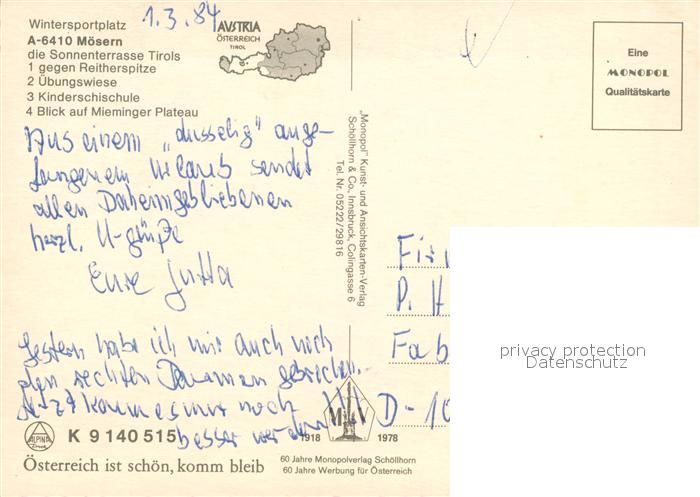 Wintersportplatz
1.3.84
A-6410 Mösern
die Sonnenterrasse Tirols
1 gegen Reitherspitze
2 Übungswiese
3 Kinderschischule
4 Blick auf Mieminger Plateau
AUSTRIA
ÖSTERREICH
TIROL
Eine
MONOPOL
Qualitätskarte
Aus einem „dusselig" ange-
fangenem Urlaub sendet
allen Daheimgebliebenen
herzl. U-grüße
Eure Jutta
Gestern habe ich mir auch noch
den rechten Daumen gebrochen.
Jetzt kann es nur noch
besser werden
„Monopol" Kunst- und Ansichtskarten-Verlag
Schöllhorn & Co., Innsbruck, Colingasse 6
Tel. Nr. 05222/29816
P. H
Fab
D-10
privacy protection
Datenschutz
ALPINA
K 9 140 515
1918 1978
Österreich ist schön, komm bleib
60 Jahre Monopolverlag Schöllhorn
60 Jahre Werbung für Österreich